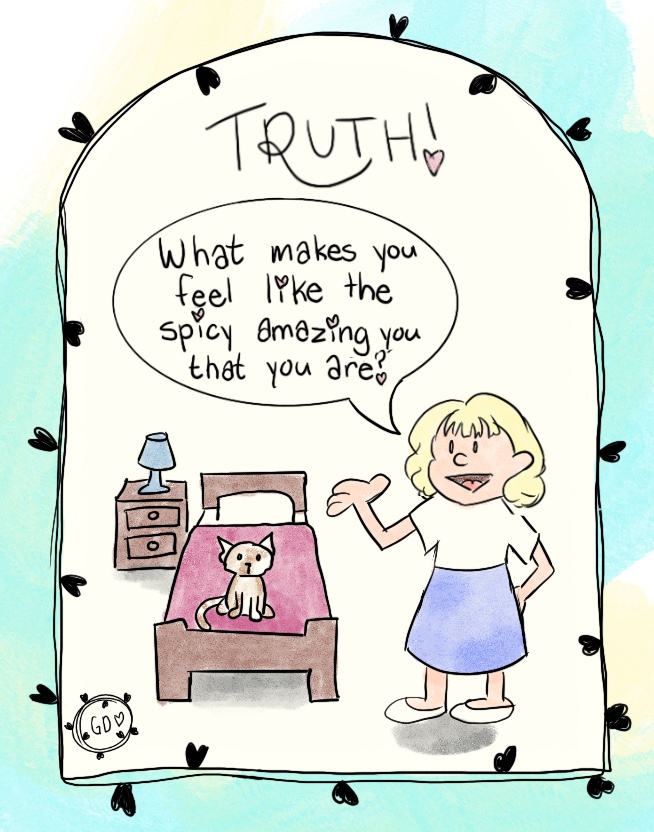 TRUTH!
What makes you
feel like the
spicy amazing you
that you are?
GD